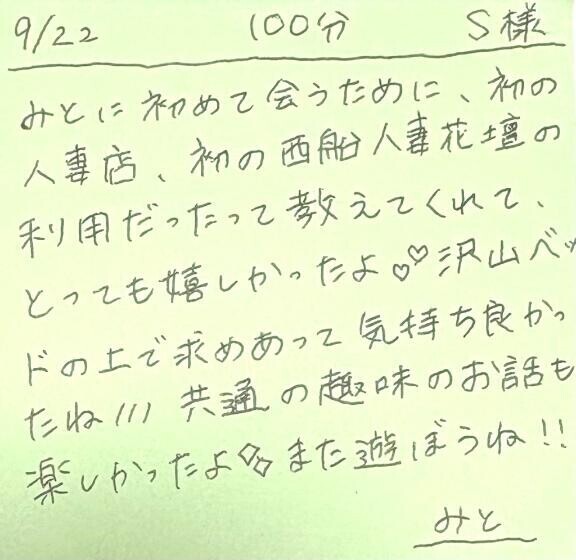 9/22 100分 S様
みとに初めて会うために、初の
人妻店、初の西船人妻花壇の
利用だったって教えてくれて、
とっても嬉しかったよ♡♡沢山ベッ
ドの上で求めあって気持ち良かっ
たね/// 共通の趣味のお話も
楽しかったよ◇◇また遊ぼうね!!
みと